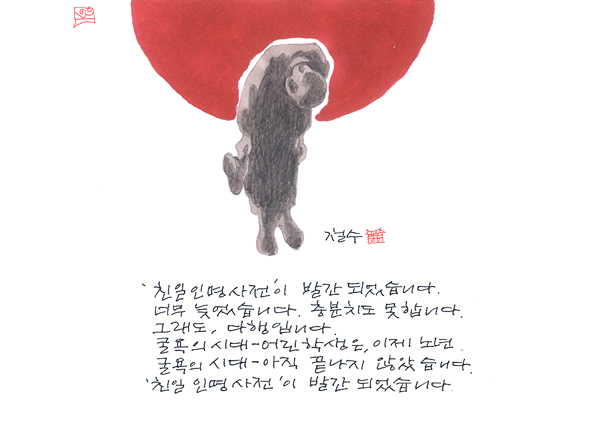 철수
'친일인명사전'이 발간 되었습니다.
너무 늦었습니다. 충분치도 못합니다.
그래도, 다행입니다.
굴욕의 시대-어린 학생은, 이제 노년.
굴욕의 시대-아직 끝나지 않았습니다.
'친일 인명 사전'이 발간 되었습니다.